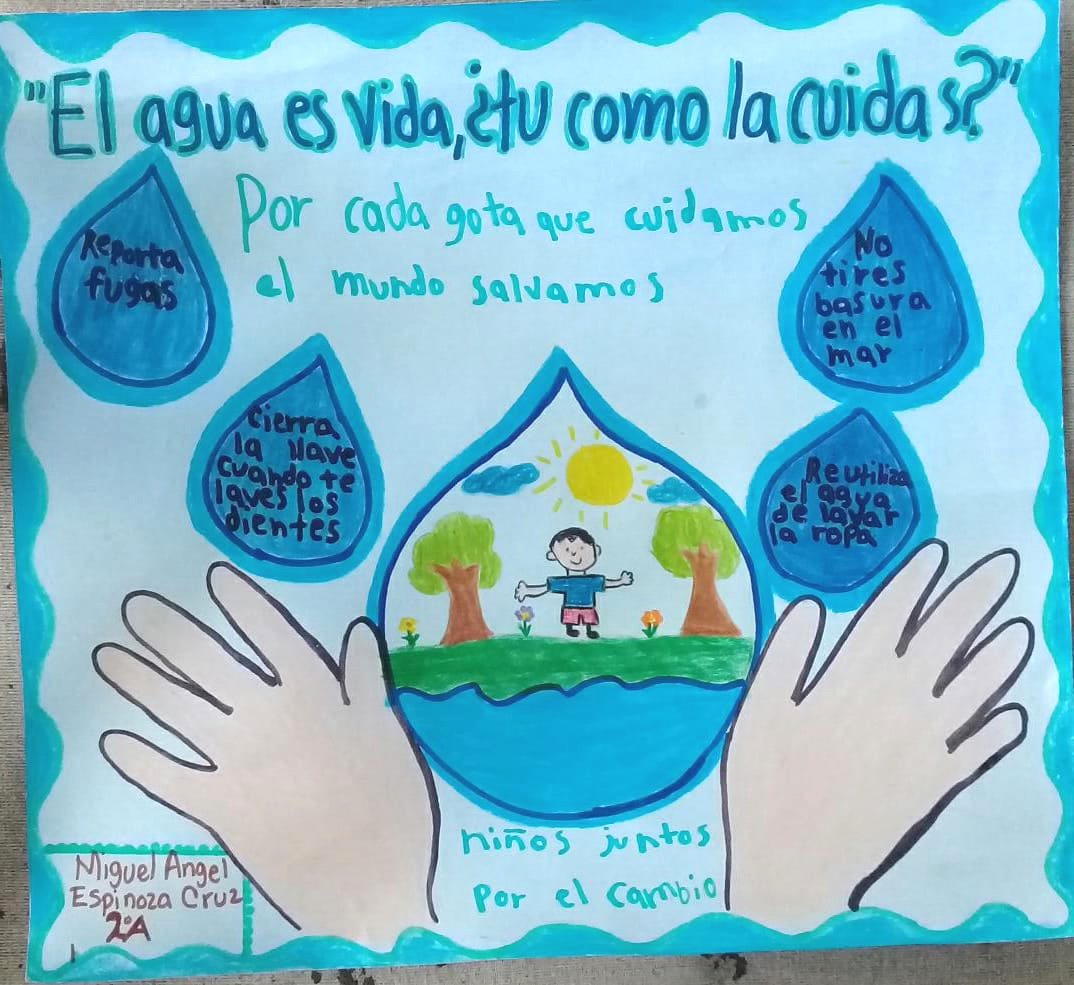 "El agua es vida, ¿tu como la cuidas?"
Por cada gota que cuidamos
el mundo salvamos
Reporta
fugas
No
tires
basura
en el
mar
cierra
la llave
cuando te
laves los
dientes
Reutiliza
el agua
de lavar
la ropa
niños juntos
por el cambio
Miguel Angel
Espinoza Cruz
2°A